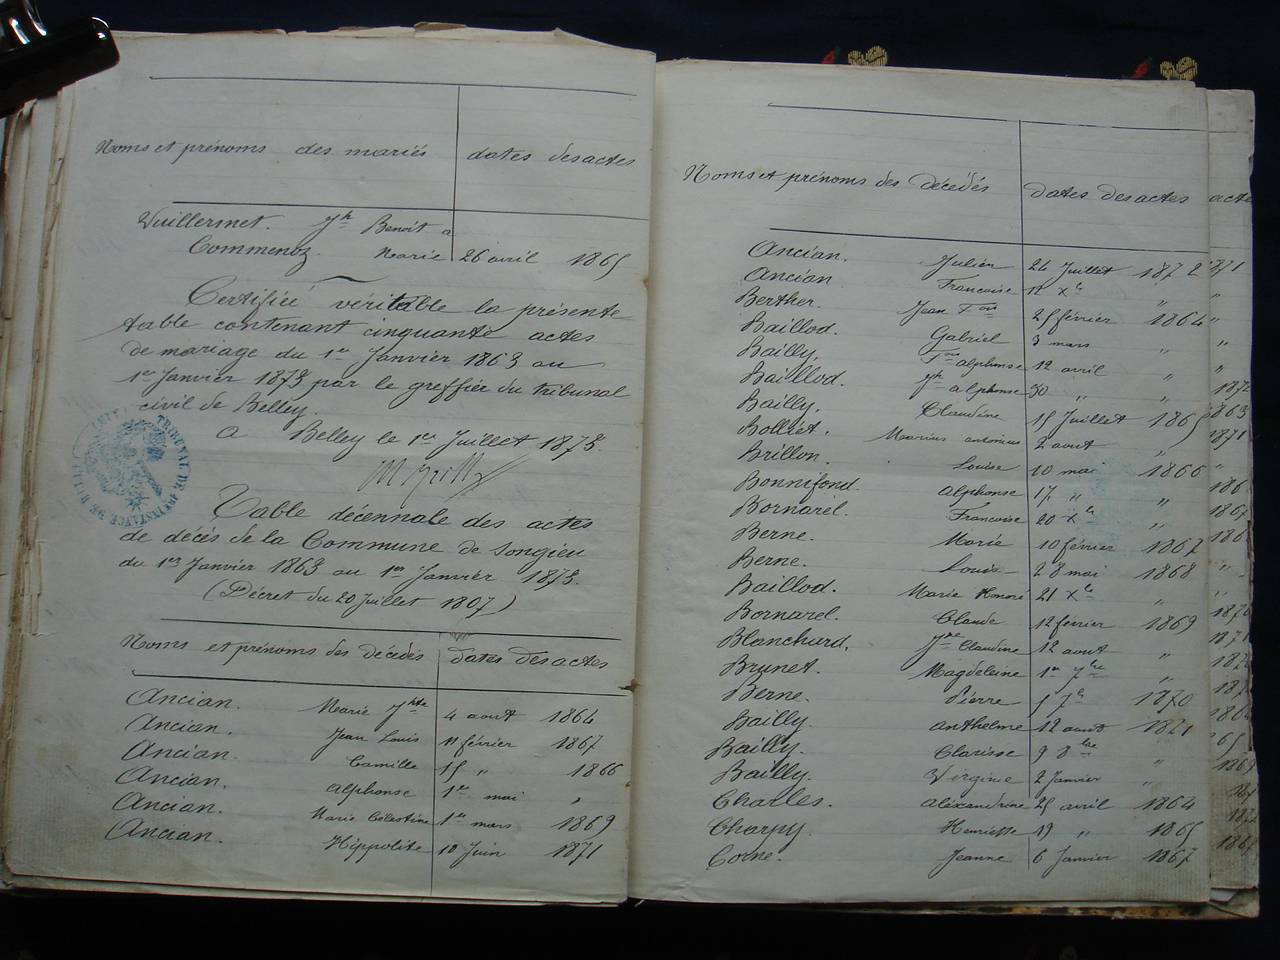 Noms et prénoms des mariés dates des actes
Vuillermet. Jh Benoit a
Commenoz. Marie 26 avril 1865
Certifiée véritable la présente
table contenant cinquante actes
de mariage du 1er Janvier 1863 au
1er Janvier 1873 par le greffier du tribunal
civil de Belley.
A Belley le 1er Juillet 1873.
Table décennale des actes
de décès de la Commune de Songieu
du 1er Janvier 1863 au 1er Janvier 1873.
(Décret du 20 Juillet 1807)
Noms et prénoms des décédés dates des actes
Ancian. Marie Jhte 4 aout 1864
Ancian. Jean Louis 11 février 1867
Ancian. Camille 15 " 1866
Ancian. alphonse 1er mai "
Ancian. Marie Célestine 1er mars 1869
Ancian. Hippolite 10 Juin 1871
TRIBUNAL DE 1re INSTANCE DE BELLEY
Noms et prénoms des décédés dates des actes
Ancian. Julien 26 Juillet 1872
Ancian Francoise 12 Xbre "
Berther. Jean Fois 25 février 1864
Baillod. Gabriel 3 mars "
Bailly. Fois alphonse 12 avril "
Baillod. Jh alphonse 30 " "
Bailly. Claudine 15 Juillet 1865
Bolliet. Marius antonius 2 aout "
Brillon. Louise 10 mai 1866
Bonnifond. alphonse 17 " "
Bornarel. Francoise 20 Xbre "
Berne. Marie 10 février 1867
Berne. Louis 28 mai 1868
Baillod. Marie Honoré 21 Xbre "
Bornarel. Claude 12 fevrier 1869
Blanchard. Jne Claudine 12 aout "
Brunet. Magdeleine 1er 7bre "
Berne. Pierre 5 7b 1870
Bailly. anthelme 12 aout 1871
Bailly. Clarisse 9 8bre "
Bailly. Virginie 2 Janvier "
Charles. alexandrine 25 avril 1864
Charpy. Henriette 19 " 1865
Corne. Jeanne 6 Janvier 1867